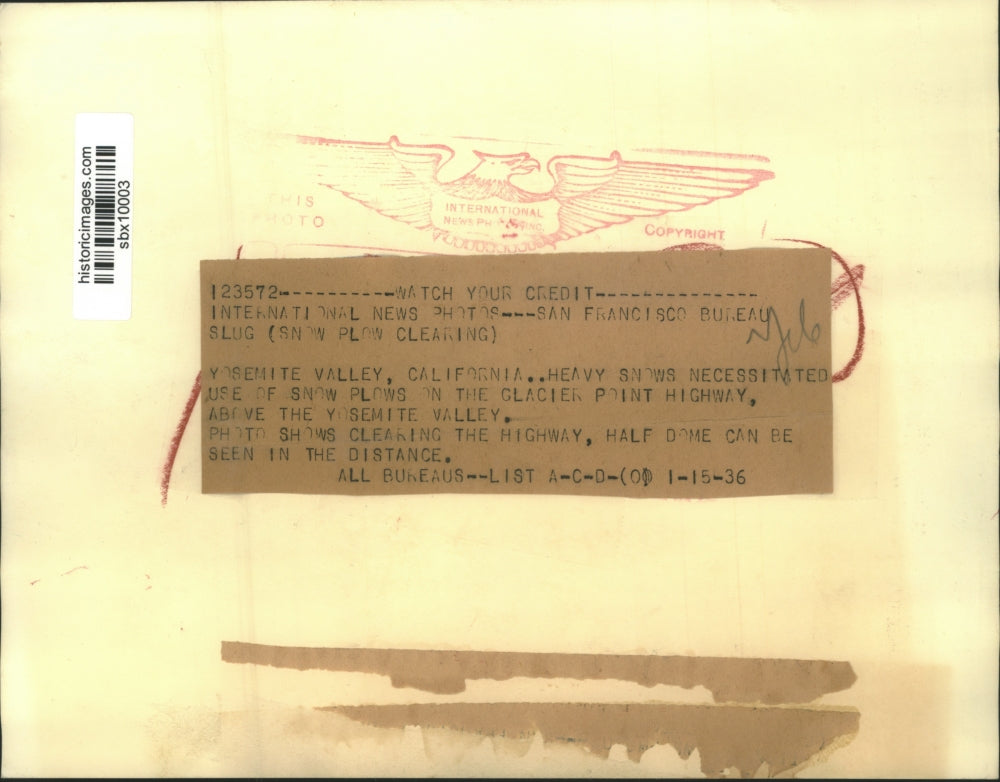 historicimages.com
sbx10003
THIS
PHOTO
INTERNATIONAL
NEWS PHOTOS INC.
COPYRIGHT
123572-----------WATCH YOUR CREDIT----------------
INTERNATIONAL NEWS PHOTOS---SAN FRANCISCO BUREAU
SLUG (SNOW PLOW CLEARING)
YOSEMITE VALLEY, CALIFORNIA..HEAVY SNOWS NECESSITATED
USE OF SNOW PLOWS ON THE GLACIER POINT HIGHWAY,
ABOVE THE YOSEMITE VALLEY.
PHOTO SHOWS CLEARING THE HIGHWAY, HALF DOME CAN BE
SEEN IN THE DISTANCE.
ALL BUREAUS--LIST A-C-D-(O) 1-15-36